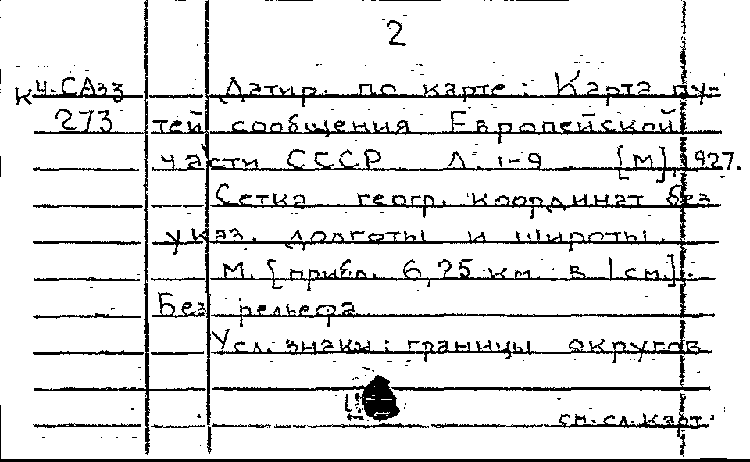 2
К Ч-САзз Датир. по карте: Карта пу-
273 тей сообщения Европейской
части СССР Л. 1-9 [М], 1927.
Сетка геогр. координат без
указ. долготы и широты.
М. [прибл. 6,25 км в 1 см].
Без рельефа
Усл. знаки: границы округов
см. сл. карт.